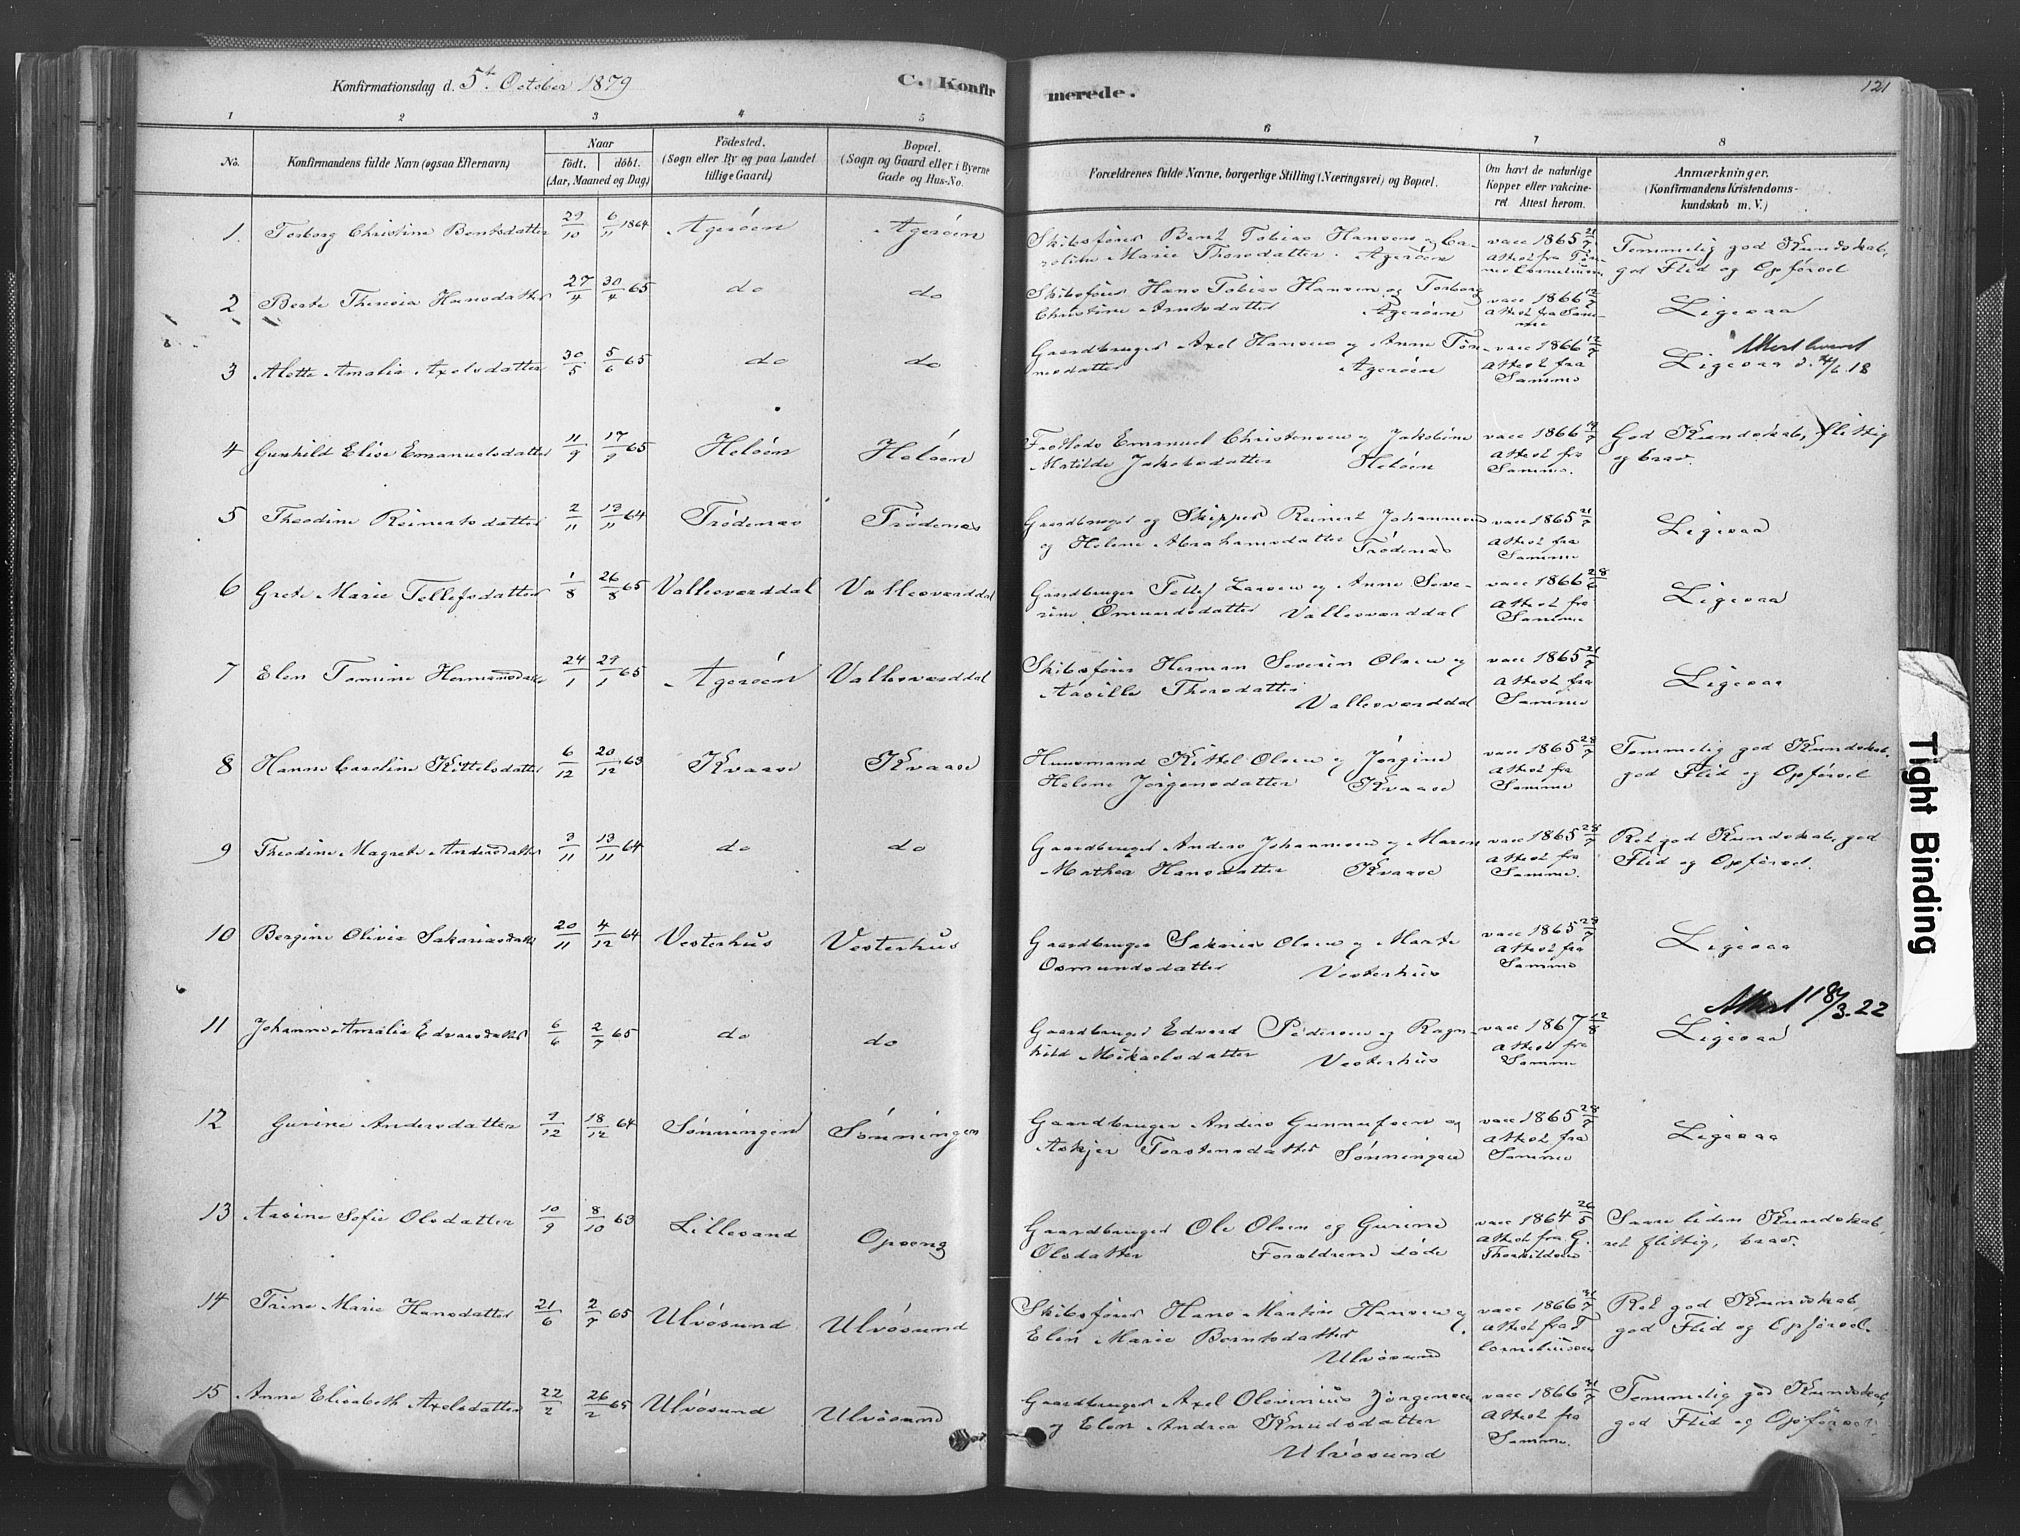 Konfirmationsdag d. 5te October 1879
C. Konfirmerede.
121
1 2 3 4 5 6 7 8
No.
Konfirmandens fulde Navn (ogsaa Efternavn)
Naar
født. døbt.
(Aar, Maaned og Dag)
Fødested.
(Sogn eller By og paa Landet
tillige Gaard)
Bopæl.
(Sogn og Gaard eller i Byerne
Gade og Hus-No.
Forældrenes fulde Navne, borgerlige Stilling (Næringsvei) og Bopæl.
Om havt de naturlige
Kopper eller vakcine-
ret. Attest herom.
Anmærkninger.
(Konfirmandens Kristendoms-
kundskab m. V.)
1 Torborg Christine Berntsdatter 29/10 6/11 1864 Agerøen Agerøen
Skibsfører Bent Tobias Hansen og Ca-
roline Marie Thorsdatter. Agerøen
vacc 1865 21/7
Attest fra Tør-
nes Corneliusen
Temmelig god Kundskab,
god Flid og Opførsel
2 Berte Theresia Hansdatter 27/4 30/4 65 do do
Skibsfører Hans Tobias Hansen og Torborg
Christine Arntsdatter Agerøen
vacc 1866 12/7
Attest fra Sam-
me
Ligesaa
3 Alette Amalie Axelsdatter 30/5 5/6 65 do do
Gaardbruger Axel Hansen og Anne Tøn-
nesdatter Agerøen
vacc 1866 12/7
Attest fra
Samme
Ligesaa
4 Gunhild Elise Emanuelsdatter 11/9 17/9 65 Heløen Heløen
Fadlods Emanuel Christensen og Jakobine
Matilde Jakobsdatter Heløen
vacc 1866 12/7
Attest fra
Samme.
God Kundskab, flittig
og brav.
5 Theodine Reinertsdatter 2/11 13/11 64 Trødenæs Trødenæs
Gaardbruger og Skipper Reinert Johannesen
og Helene Abrahamsdatter Trødenæs
vacc 1865 21/7
Attest fra
Samme
Ligesaa
6 Grete Marie Tellefsdatter 1/8 26/8 65 Vallesværddal Vallesværddal
Gaardbruger Tellef Larsen og Anne Seve-
rine Omundsdatter Vallesværddal
vacc 1866 28/6
Attest fra
Samme
Ligesaa
7 Elen Tomine Hermansdatter 24/1 29/1 65 Agerøen Vallesværddal
Skibsfører Herman Severin Olsen og
Aasille Thorsdatter
Vallesværddal
vacc 1865 21/7
Attest fra
Samme
Ligesaa
8 Hanne Caroline Kittelsdatter 6/12 20/12 63 Kvaase Kvaase
Huusmand Kittel Olsen og Jørgine
Helene Jørgensdatter Kvaase
vacc 1865 28/7
Attest fra
Samme
Temmelig god Kundskab.
god Flid og Opførsel
9 Theodine Magrete Andersdatter 3/11 13/11 64 do do
Gaardbruger Anders Johannesen og Maren
Mathea Hansdatter Kvaase
vacc 1865 28/7
Attest fra
Samme.
Ret god Kundskab, god
Flid og Opførsel.
10 Bergine Olivia Sakariasdatter 20/11 4/12 64 Vesterhus Vesterhus
Gaardbruger Sakarias Olsen og Marte
Osmundsdatter Vesterhus
vacc 1865 28/7
Attest fra
Samme
Ligesaa
11 Johanne Amalie Edvardsdatter 6/6 2/7 65 do do
Gaardbruger Edvard Pedersen og Ragn-
hild Mikaelsdatter Vesterhus
vacc 1867 12/8
Attest fra
Samme
Ligesaa
12 Gurine Andersdatter 7/12 18/12 64 Sønningen Sønningen
Gaardbruger Anders Gunnufsen og
Askjer Torstensdatter Sønningen
vacc 1865 28/7
Attest fra
Samme
Ligesaa
13 Aasine Sofie Olsdatter 10/9 8/10 63 Lillesand Opseng
Gaardbruger Ole Olsen og Gurine
Olsdatter Foraldrene døde
vacc 1864 26/5
Attest fra G.
Thorkildsen
Saare liden Kundskab,
ret flittig, brav.
14 Trine Marie Hansdatter 21/6 2/7 65 Ulvøsund Ulvøsund
Skibsfører Hans Martin Hansen og
Elen Marie Berntsdatter
Ulvøsund
vacc 1866 21/7
Attest fra T
Corneliussen
Ret god Kundskab,
god Flid og Opførsel.
15 Anne Elisabeth Axelsdatter 22/2 26/2 65 Ulvøsund Ulvøsund
Gaardbruger Axel Olevinius Jørgensen
og Elen Andrea Knudsdatter
Ulvøsund
vacc 1866 21/7
Attest fra
Samme.
Temmelig god Kundskab,
god Flid og Opførsel.
Tight Binding